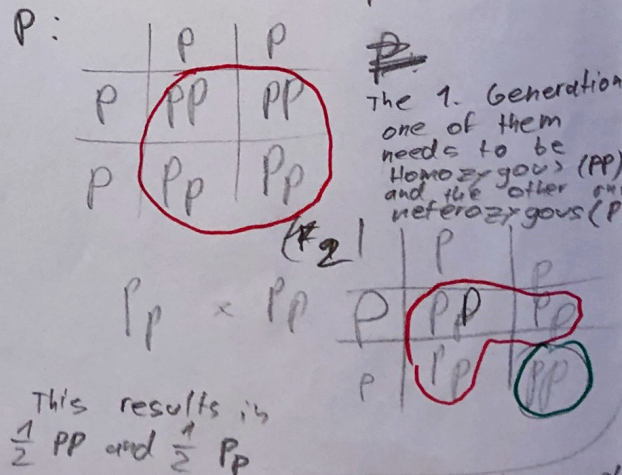 P:
P P
P PP PP
P Pp Pp
The 1. Generation
one of them
needs to be
Homozygous (PP)
and the other
heterozygous (P
P p
Pp x Pp
P PP Pp
p Pp pp
This results in
1/2 PP and 1/2 Pp